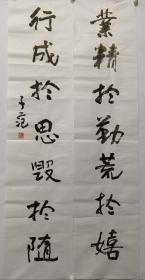 業精於勤荒於嬉
行成於思毁於随
子范